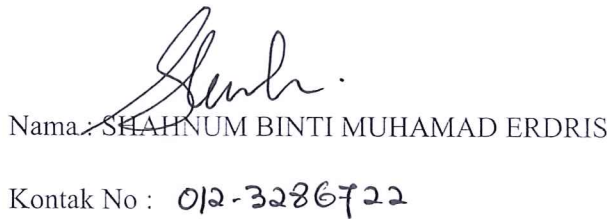 Nama : SHAHNUM BINTI MUHAMAD ERDRIS
Kontak No : 012-3286722